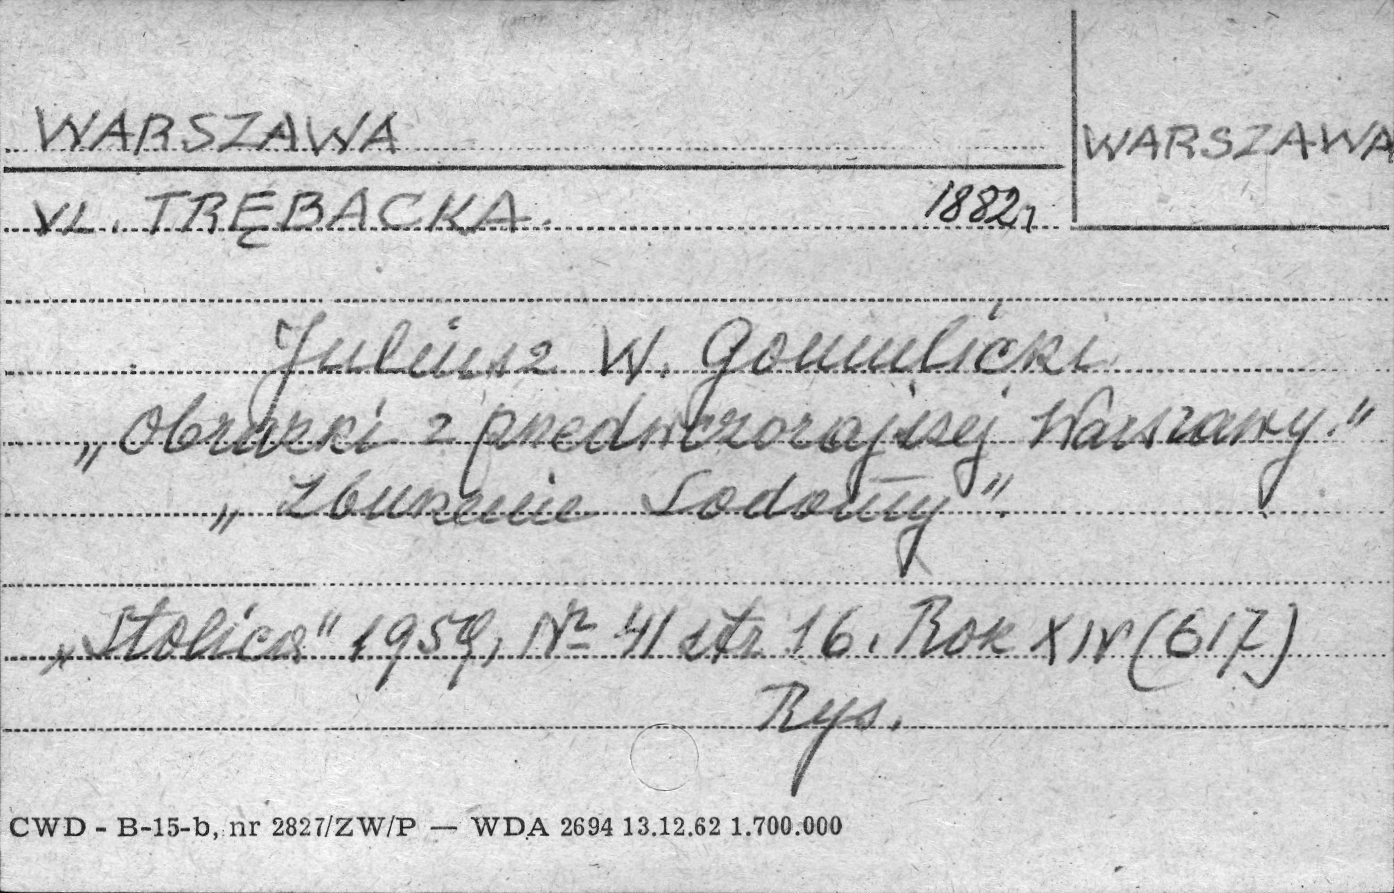 WARSZAWA
WARSZAWA
UL. TRĘBACKA. 1882r
Juliusz W. Gomulicki
„Obrazki z przedwczorajszej Warszawy."
„Zburzenie Sodomy"
„Stolica" 1959, Nr 41 str 16. Rok XIV (617)
Rys.
CWD - B-15-b, nr 2827/ZW/P — WDA 2694 13.12.62 1.700.000